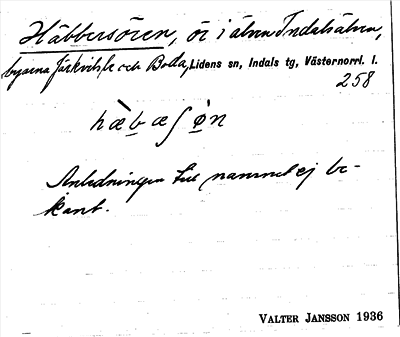 Häbbersören, ör i älven Indalsälven,
byarna Järkvitsle och Bolla, Lidens sn, Indals tg, Västernorrl. l.
258
hæ̀bæʃø̀n
Anledningen till namnet ej be-
kant.
VALTER JANSSON 1936